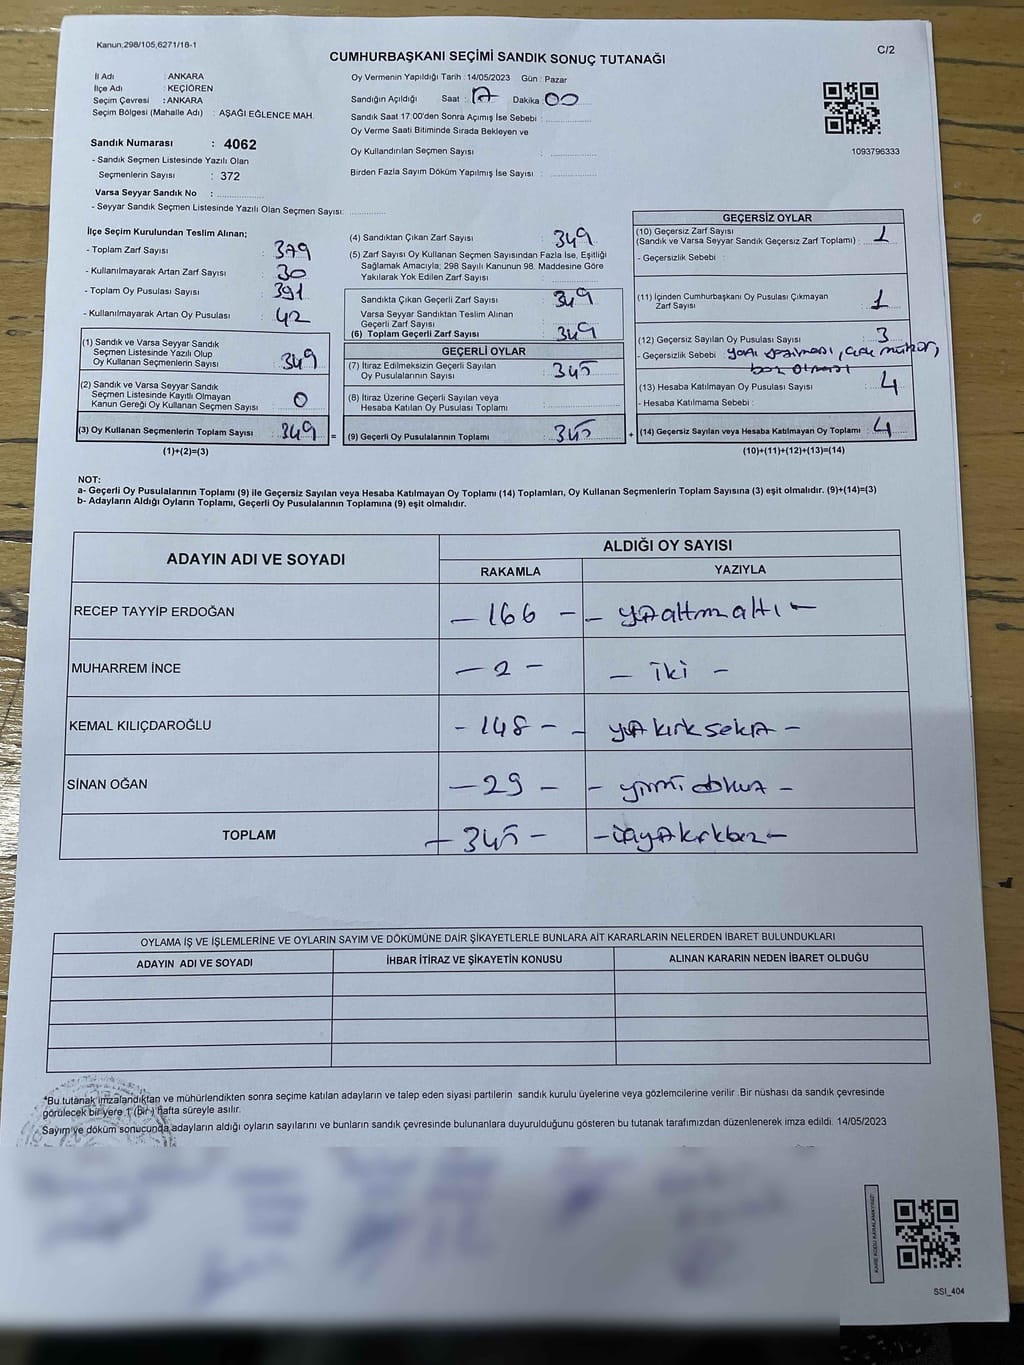 Kanun;298/105,6271/18-1
C/2
CUMHURBAŞKANI SEÇİMİ SANDIK SONUÇ TUTANAĞI
İl Adı : ANKARA
İlçe Adı : KEÇİÖREN
Seçim Çevresi : ANKARA
Seçim Bölgesi (Mahalle Adı) : AŞAĞI EĞLENCE MAH.
Sandık Numarası : 4062
- Sandık Seçmen Listesinde Yazılı Olan
Seçmenlerin Sayısı : 372
Varsa Seyyar Sandık No :
- Seyyar Sandık Seçmen Listesinde Yazılı Olan Seçmen Sayısı:
Oy Vermenin Yapıldığı Tarih : 14/05/2023 Gün : Pazar
Sandığın Açıldığı Saat : 17 Dakika : 00
Sandık Saat 17:00'den Sonra Açımış İse Sebebi :
Oy Verme Saati Bitiminde Sırada Bekleyen ve
Oy Kullandırılan Seçmen Sayısı :
Birden Fazla Sayım Döküm Yapılmış İse Sayısı :
1093796333
İlçe Seçim Kurulundan Teslim Alınan;
- Toplam Zarf Sayısı : 379
- Kullanılmayarak Artan Zarf Sayısı : 30
- Toplam Oy Pusulası Sayısı : 391
- Kullanılmayarak Artan Oy Pusulası : 42
(1) Sandık ve Varsa Seyyar Sandık
Seçmen Listesinde Yazılı Olup
Oy Kullanan Seçmenlerin Sayısı : 349
(2) Sandık ve Varsa Seyyar Sandık
Seçmen Listesinde Kayıtlı Olmayan
Kanun Gereği Oy Kullanan Seçmen Sayısı : 0
(3) Oy Kullanan Seçmenlerin Toplam Sayısı : 349 =
(1)+(2)=(3)
(4) Sandıktan Çıkan Zarf Sayısı : 349
(5) Zarf Sayısı Oy Kullanan Seçmen Sayısından Fazla İse, Eşitliği
Sağlamak Amacıyla; 298 Sayılı Kanunun 98. Maddesine Göre
Yakılarak Yok Edilen Zarf Sayısı :
Sandıkta Çıkan Geçerli Zarf Sayısı : 349
Varsa Seyyar Sandıktan Teslim Alınan
Geçerli Zarf Sayısı :
(6) Toplam Geçerli Zarf Sayısı : 349
GEÇERLİ OYLAR
(7) İtiraz Edilmeksizin Geçerli Sayılan
Oy Pusulalarının Sayısı : 345
(8) İtiraz Üzerine Geçerli Sayılan veya
Hesaba Katılan Oy Pusulası Toplamı :
(9) Geçerli Oy Pusulalarının Toplamı : 345 +
GEÇERSİZ OYLAR
(10) Geçersiz Zarf Sayısı
(Sandık ve Varsa Seyyar Sandık Geçersiz Zarf Toplamı) : 1
- Geçersizlik Sebebi :
(11) İçinden Cumhurbaşkanı Oy Pusulası Çıkmayan
Zarf Sayısı : 1
(12) Geçersiz Sayılan Oy Pusulası Sayısı : 3
- Geçersizlik Sebebi : yazı yazılması, mühür,
boz olması
(13) Hesaba Katılmayan Oy Pusulası Sayısı : 4
- Hesaba Katılmama Sebebi :
(14) Geçersiz Sayılan veya Hesaba Katılmayan Oy Toplamı : 4
(10)+(11)+(12)+(13)=(14)
NOT:
a- Geçerli Oy Pusulalarının Toplamı (9) ile Geçersiz Sayılan veya Hesaba Katılmayan Oy Toplamı (14) Toplamları, Oy Kullanan Seçmenlerin Toplam Sayısına (3) eşit olmalıdır. (9)+(14)=(3)
b- Adayların Aldığı Oyların Toplamı, Geçerli Oy Pusulalarının Toplamına (9) eşit olmalıdır.
ADAYIN ADI VE SOYADI ALDIĞI OY SAYISI
RAKAMLA YAZIYLA
RECEP TAYYİP ERDOĞAN – 166 – – yüzaltmışaltı –
MUHARREM İNCE – 2 – – iki –
KEMAL KILIÇDAROĞLU – 148 – – yüz kırk sekiz –
SİNAN OĞAN – 29 – – yirmi dokuz –
TOPLAM – 345 – – üçyüzkırkbeş –
OYLAMA İŞ VE İŞLEMLERİNE VE OYLARIN SAYIM VE DÖKÜMÜNE DAİR ŞİKAYETLERLE BUNLARA AİT KARARLARIN NELERDEN İBARET BULUNDUKLARI
ADAYIN ADI VE SOYADI İHBAR İTİRAZ VE ŞİKAYETİN KONUSU ALINAN KARARIN NEDEN İBARET OLDUĞU
*Bu tutanak imzalandıktan ve mühürlendikten sonra seçime katılan adayların ve talep eden siyasi partilerin sandık kurulu üyelerine veya gözlemcilerine verilir. Bir nüshası da sandık çevresinde
görülecek bir yere 1 (Bir) hafta süreyle asılır.
Sayım ve döküm sonucunda adayların aldığı oyların sayılarını ve bunların sandık çevresinde bulunanlara duyurulduğunu gösteren bu tutanak tarafımızdan düzenlenerek imza edildi. 14/05/2023
KARE KODU KARALAMAYINIZ!
SSI_404